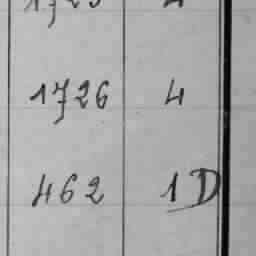 1726 4
462 1D